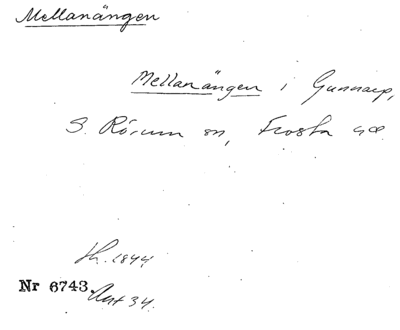 Mellanängen
Mellanängen i Gunnarp,
S. Rörum sn, Frosta hd
1844
Nr 6743.
34.